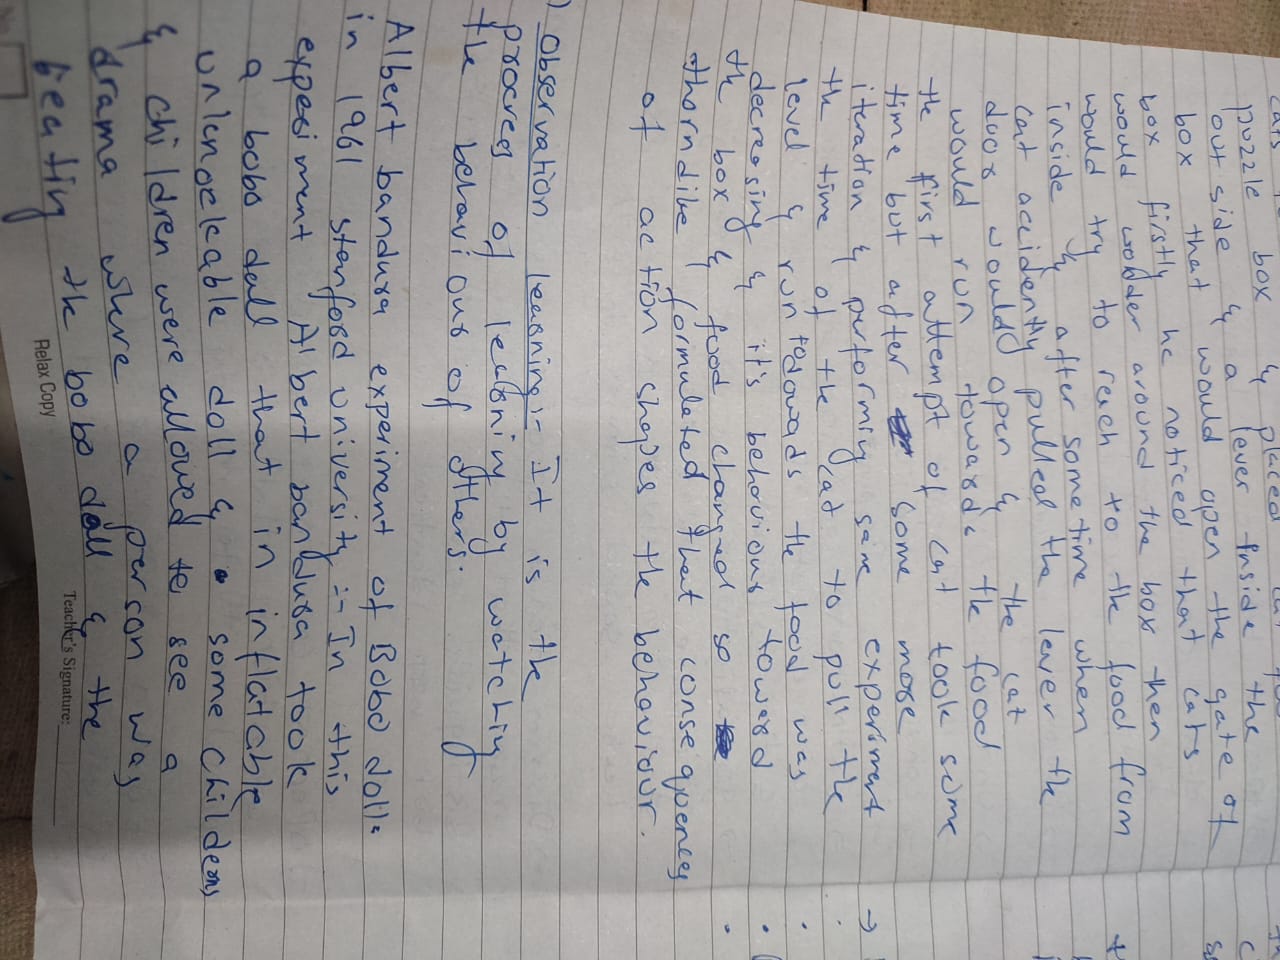 cats
puzzle box & placed
out side & a lever Inside the
box that would open the gate of
box firstly he noticed that cats
would wobder around the box then
would try to reach to the food from
inside & after some time when
cat accidently pulled the lever the
door would open & the cat
would run towards the food
the first attempt of cat took some
time but after some more
iteration & performing same experiment
the time of the cat to pull the
level & run to dowads the food was
decreasing & it's behaviour toward
the box & food changed so
thorndike formulated that consequences
of action shapes the behaviour.
) Observation learning :- It is the
procress of learning by watching
the behaviour of others.
Albert bandura experiment of Bobo doll:
in 1961 stanford university :- In this
experiment Albert bandura took
a bobo doll that in inflatable
unknockable doll & some childerns
& children were allowed to see a
drama where a person was
beating the bobo doll & the
Teacher's Signature:
Relax Copy